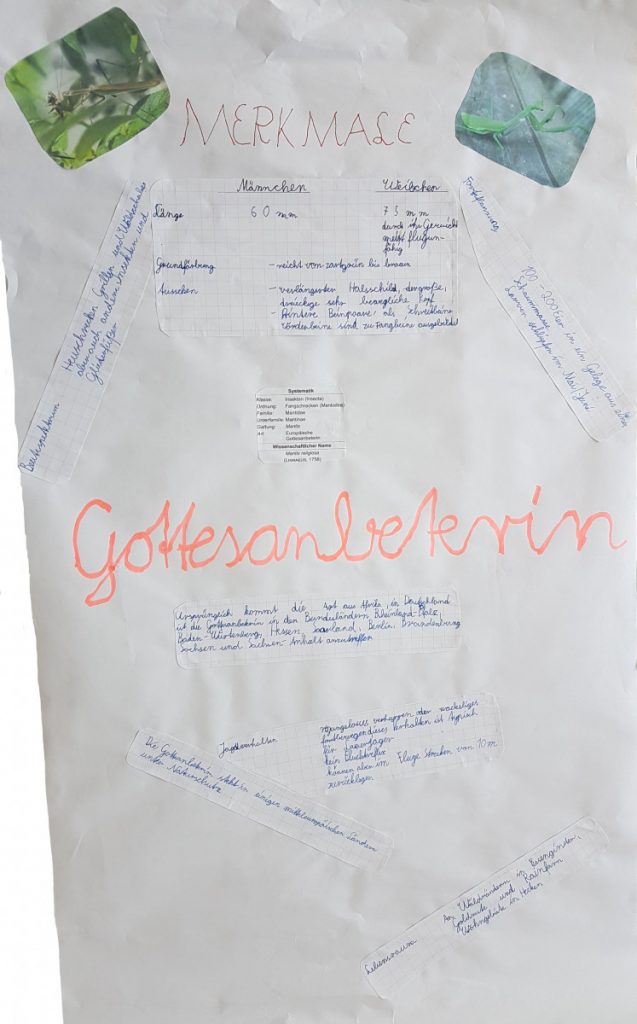 MERKMALE
Männchen Weibchen
Länge 60 mm 75 mm
durch ihr Gewicht
meist flugun-
fähig
Grundfärbung - reicht von zartgrün bis braun
Aussehen - verlängerten Halsschild, der große,
dreieckige sehr bewegliche Kopf
- Hintere Beinpaare, als Schreitbeine
Vorderbeine sind zu Fangbeine ausgebildet
Beutespektrum Heuschrecken Grillen und
aber auch andere Insekten und
Gliederfüßer
Fortpflanzung
100 - 200 Eier in ein Gelege aus
Schaummasse
Larven schlüpfen im Mai/Juni
Systematik
Klasse: Insekten (Insecta)
Ordnung: Fangschrecken (Mantodea)
Familie: Mantidae
Unterfamilie: Mantinae
Gattung: Mantis
Art: Europäische
Gottesanbeterin
Wissenschaftlicher Name
Mantis religiosa
(LINNAEUS, 1758)
Gottesanbeterin
Ursprünglich kommt die Art aus Afrika, in Deutschland
ist die Gottesanbeterin in den Bundesländern Rheinland-Pfalz,
Baden-Würtenberg, Hessen, Saarland, Berlin, Brandenburg
Sachsen und Sachsen-Anhalt anzutreffen
Jagdverhalten regungsloses verharren oder wackeliges
dieses Verhalten ist typisch
für Lauerjäger
kein
können aber im Fluge Strecken von 10 m
zurücklegen
Die Gottesanbeterin steht in einigen mitteleuropäischen Ländern
unter Naturschutz
Lebensraum An Waldrändern in
Goldrute und Rainfarn
in Hecken